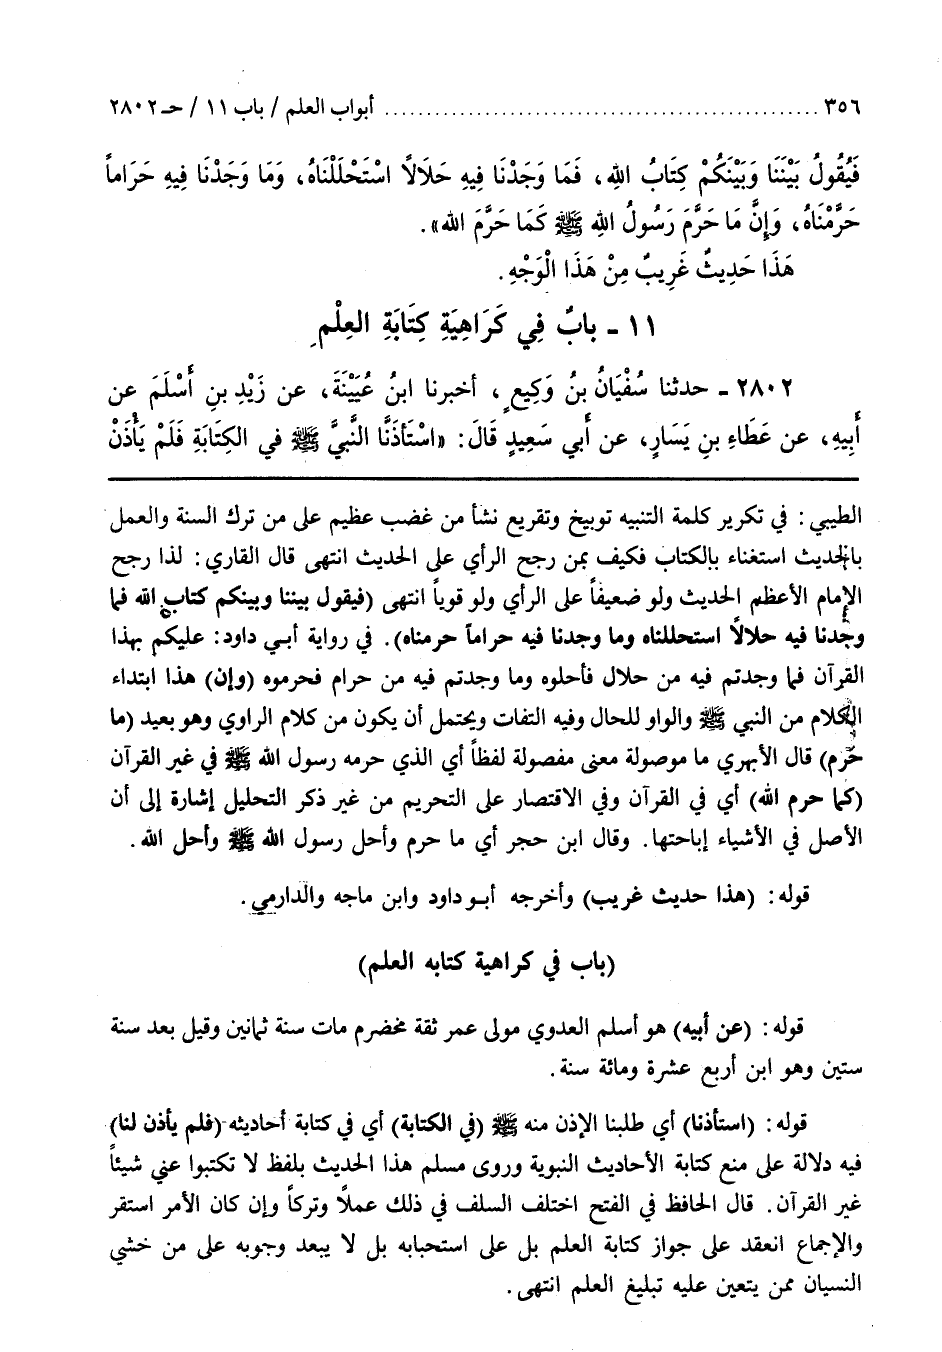 ٣٥٦ ........................................ أبواب العلم / باب ١١ / حـ ٢٨٠٢
فَيُقُولُ بَيْنَنَا وَبَيْنَكُمْ كِتَابُ اللهِ، فَمَا وَجَدْنَا فِيهِ حَلَالًا اسْتَحْلَلْنَاهُ، وَمَا وَجَدْنَا فِيهِ حَرَاماً
حَرَّمْنَاهُ، وَإِنَّ مَا حَرَّمَ رَسُولُ اللهِ ﷺ كَمَا حَرَّمَ اللهُ».
هَذَا حَدِيثٌ غَرِيبٌ مِنْ هَذَا الْوَجْهِ.
١١ - بابٌ فِي كَرَاهِيَةِ كِتَابَةِ العِلْمِ
٢٨٠٢ - حدثنا سُفْيَانُ بنُ وَكِيعٍ، أخبرنا ابنُ عُيَيْنَةَ، عن زَيْدِ بنِ أَسْلَمَ عن
أَبِيهِ، عن عَطَاءِ بنِ يَسَارٍ، عن أبي سَعِيدٍ قَالَ: «اسْتَأذَنَّا النَّبيَّ ﷺ في الكِتَابَةِ فَلَمْ يَأْذَنْ
الطيبي: في تكرير كلمة التنبيه توبيخ وتقريع نشأ من غضب عظيم على من ترك السنة والعمل
بالحديث استغناء بالكتاب فكيف بمن رجح الرأي على الحديث انتهى قال القاري: لذا رجح
الإمام الأعظم الحديث ولو ضعيفاً على الرأي ولو قوياً انتهى (فيقول بيننا وبينكم كتاب الله فما
وجدنا فيه حلالًا استحللناه وما وجدنا فيه حراماً حرمناه). في رواية أبـي داود: عليكم بهذا
القرآن فما وجدتم فيه من حلال فأحلوه وما وجدتم فيه من حرام فحرموه (وإن) هذا ابتداء
الكلام من النبي ﷺ والواو للحال وفيه التفات ويحتمل أن يكون من كلام الراوي وهو بعيد (ما
حرّم) قال الأبهري ما موصولة معنى مفصولة لفظاً أي الذي حرمه رسول الله ﷺ في غير القرآن
(كما حرم الله) أي في القرآن وفي الاقتصار على التحريم من غير ذكر التحليل إشارة إلى أن
الأصل في الأشياء إباحتها. وقال ابن حجر أي ما حرم وأحل رسول الله ﷺ وأحل الله.
قوله: (هذا حديث غريب) وأخرجه أبـو داود وابن ماجه والدارمي.
(باب في كراهية كتابه العلم)
قوله: (عن أبيه) هو أسلم العدوي مولى عمر ثقة مخضرم مات سنة ثمانين وقيل بعد سنة
ستين وهو ابن أربع عشرة ومائة سنة.
قوله: (استأذنا) أي طلبنا الإذن منه ﷺ (في الكتابة) أي في كتابة أحاديثه (فلم يأذن لنا)
فيه دلالة على منع كتابة الأحاديث النبوية وروى مسلم هذا الحديث بلفظ لا تكتبوا عني شيئاً
غير القرآن. قال الحافظ في الفتح اختلف السلف في ذلك عملًا وتركاً وإن كان الأمر استقر
والإجماع انعقد على جواز كتابة العلم بل على استحبابه بل لا يبعد وجوبه على من خشي
النسيان ممن يتعين عليه تبليغ العلم انتهى.